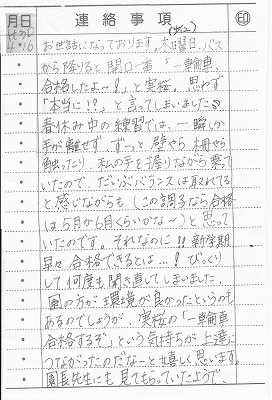 月日 連絡事項 印
4・16
お世話になっております。木曜日、バス
から降りると開口一番「一輪車、
合格したよ〜!」と実桜。思わず
「本当に!?」と言ってしまいました
春休み中の練習では、一瞬しか
手が離せず、ずっと壁やら柵やら
触ったり、私の手を握りながら乗って
いたので、だいぶバランスは取れてる
と感じながらも(この調子なら合格
は5月か6月くらいかな〜)と思って
いたのです。それなのに!!新学期
早々合格できるとは…!びっくり
して何度も聞き直してしまいました。
園の方が環境が良かったというのも
あるのでしょうが、実桜の「一輪車
合格するぞ」という気持ちが上達に
つながったのだな〜と嬉しく思います。
園長先生にも見てもらっていたようで、